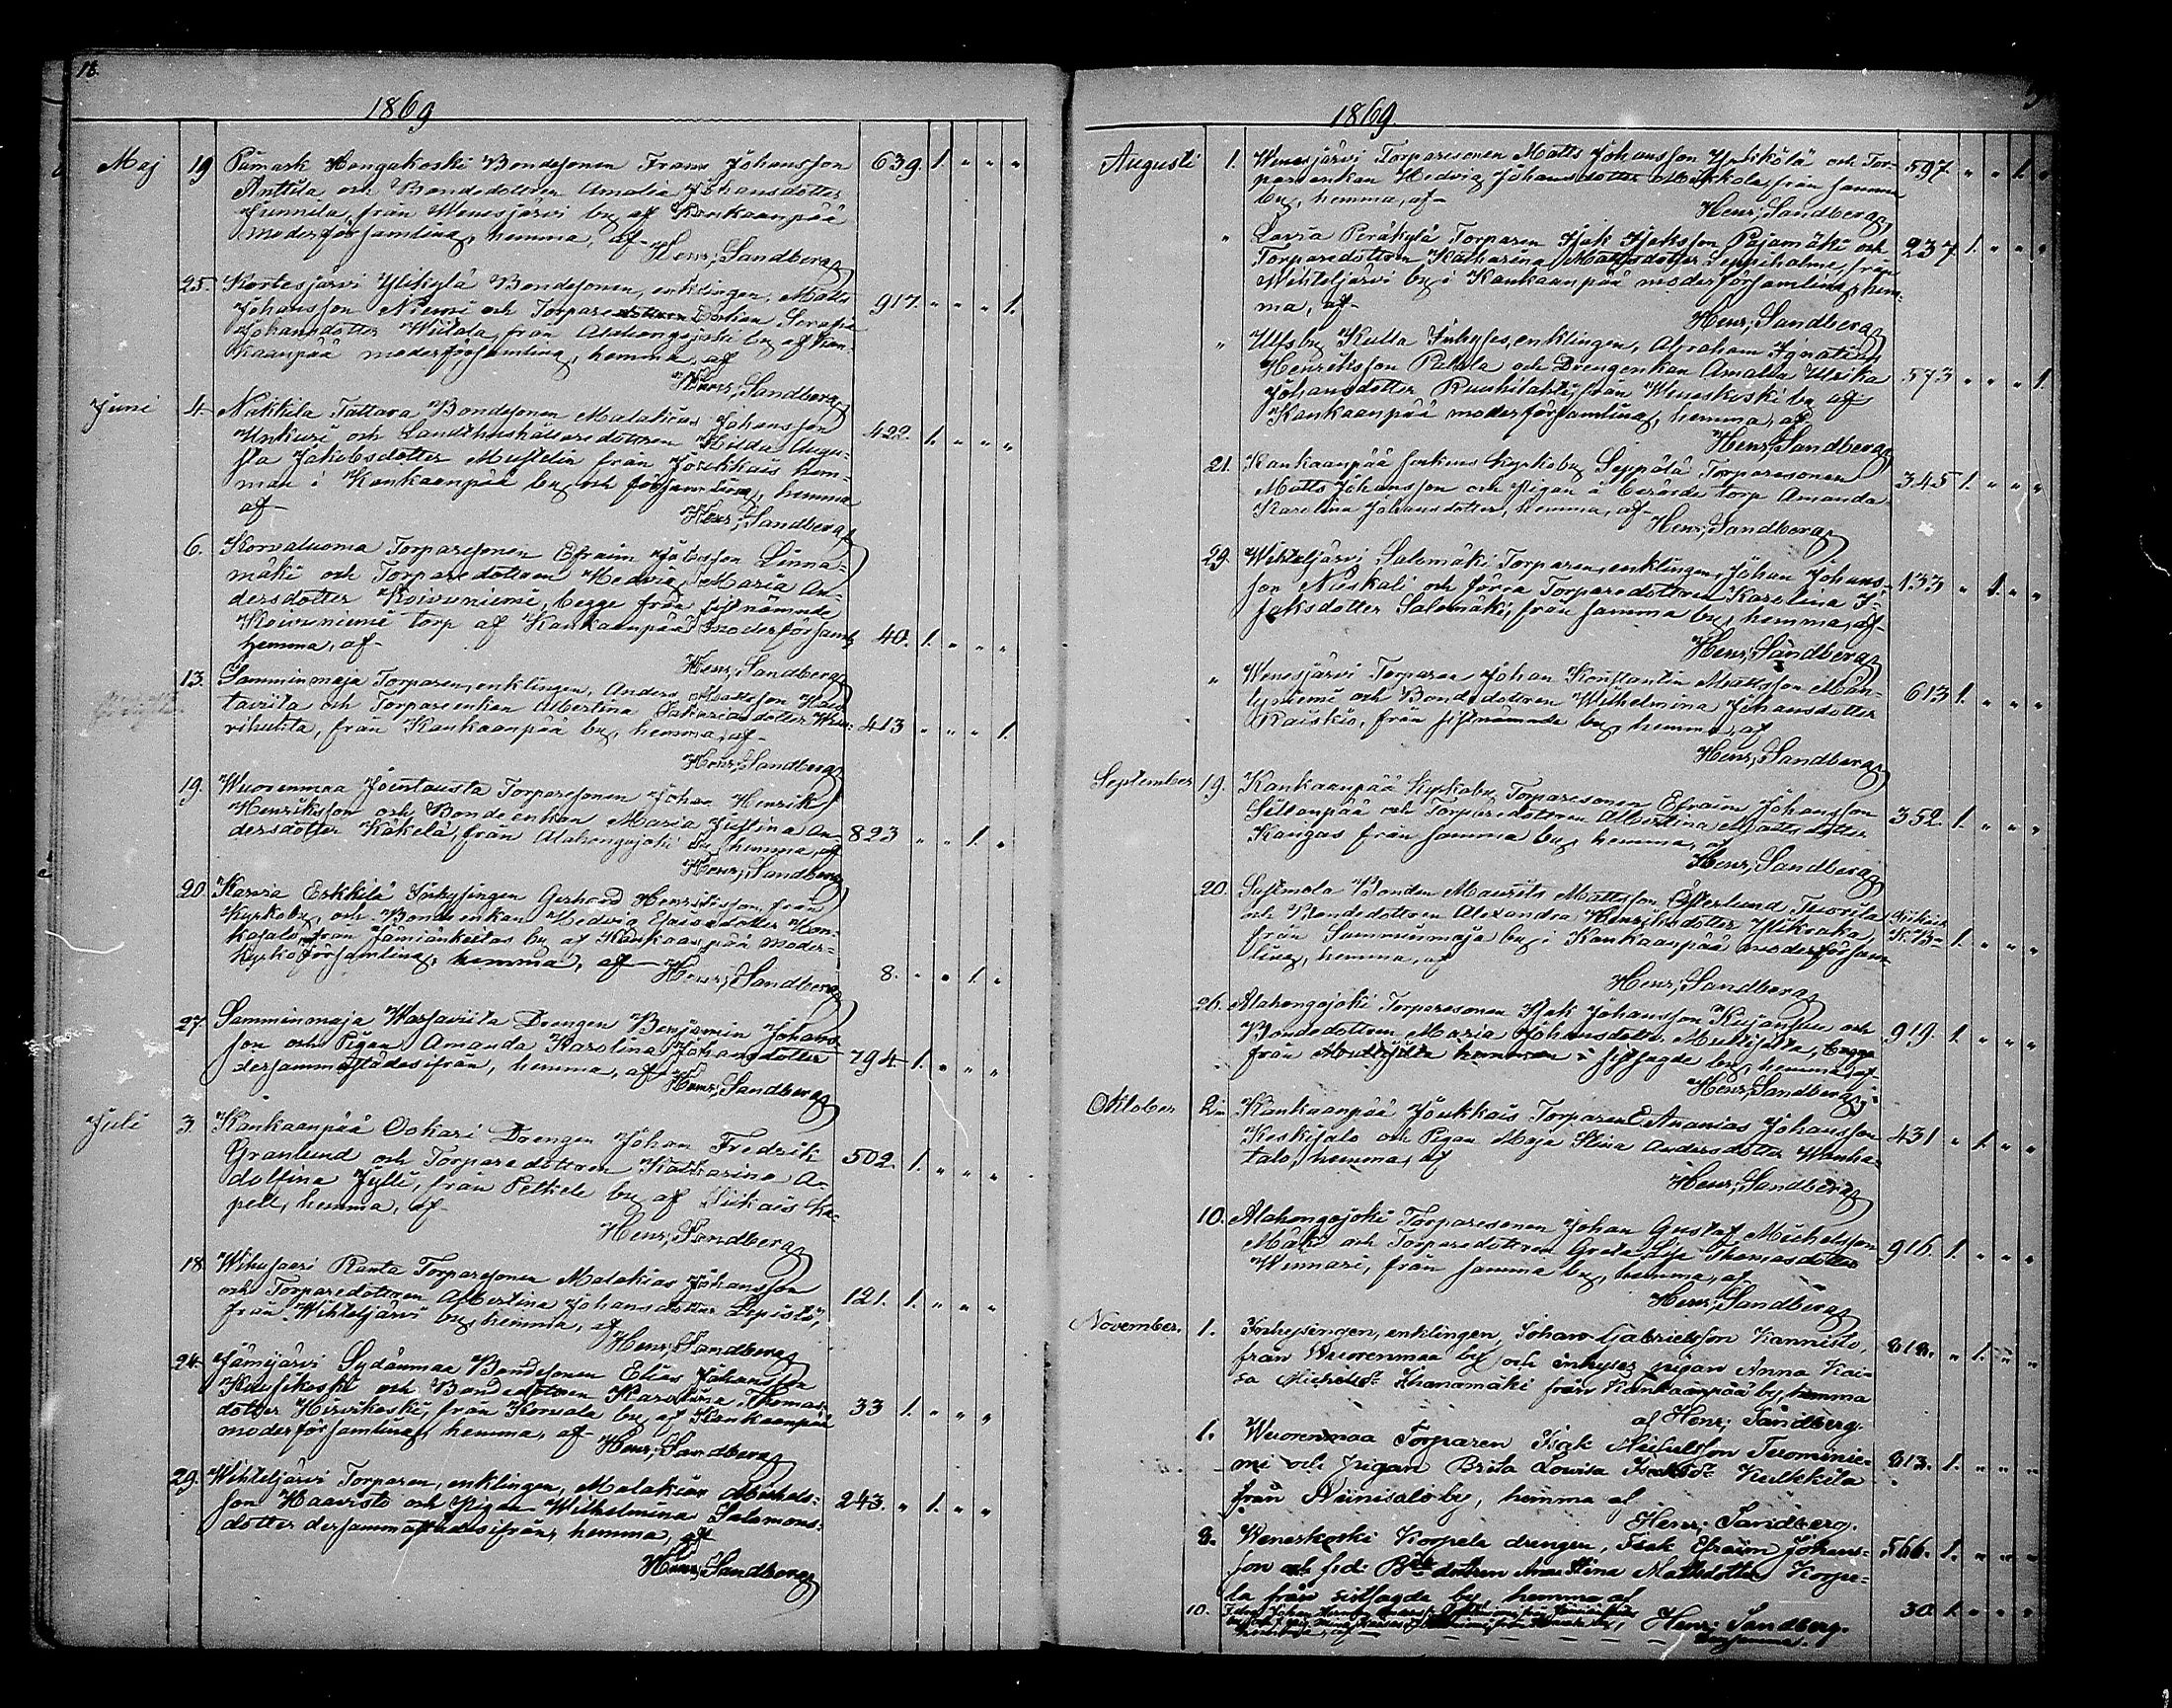 18.
1869
Maj 19 Påmark Hongakoski Bondesonen Frans Johansson 639. 1. " " "
Anttila och Bondedottren Amalia Johansdotter
Junnila, från Wenesjärvi by af Kankaanpää
moderförsamling, hemma, af Henr; Sandberg
25 Kortesjärvi Ylikylä Bondesonen, enklingen, Matts
Johansson Niemi och Torpare enkan Serafia 917. " " " 1.
Johansdotter Wiitala, från Alahongojoki by af Kan-
kaanpää moderförsamling, hemma, af
Henr; Sandberg
Juni 4. Nakkila Tattara Bondesonen Malakias Johansson
och Landthushållaredottren Hilda Augu- 422. 1. " " "
sta Jakobsdotter Mustelin från Joukkais hem-
man i Kankaanpää by och församling, hemma
af Henr; Sandberg
6. Korvaluoma Torparesonen Efraim Linna-
mäki och Torparedottren Hedvig Maria An-
dersdotter Koivuniemi, begge från sistnämnde
Koivuniemi torp af Kankaanpää moderförsaml; 40. 1. " " "
hemma, af
Henr; Sandberg
13. Samminmaja Torparen, enklingen, Anders Mattsson
och Torpareenkan Albertina 413 " " " 1.
från Kankaanpää by, hemma, af
Henr; Sandberg
19. Wuorenmaa Jointausta Torparesonen Johan Henrik
Henriksson och Bondeenkan Maria Justina An- 823 " " 1. "
dersdotter Käkelä, från Alahongojoki by, hemma, af
Henr; Sandberg
20. Karvia Erkkilä Inhysingen Gerhard Henriksson från
Kyrkoby, och Bondeenkan Hedvig Hon-
kasalo, från Jämiänkeitas by af Kankaanpää moder-
kyrkoförsamling, hemma, af Henr; Sandberg 8. " " 1. "
27. Samminmaja Drengen Benjamin Johans-
son och Pigan Amanda Karolina Johansdotter 794. 1. " " "
dersammastädesifrån, hemma, af
Henr; Sandberg
Juli 3. Kankaanpää Drengen Johan Fredrik
Granlund och Torparedottren Katharina A- 502. 1. " " "
dolfina Jylli, från Petkele by af Siikais Ka-
pell, hemma, af
Henr; Sandberg
18 Wihusaari Ranta Torparesonen Malakias Johansson
och Torparedottren Albertina Johansdotter Lepistö, 121. 1. " " "
från Wihteljärvi by, hemma, af
Henr; Sandberg
24. Jämijärvi Sydänmaa Bondesonen Elias Johansson
Kuusikoski och Bondedottren Karolina Thomas- 33 1. " " "
dotter Hirvikoski, från Korvala by af Kankaanpää
moderförsamling, hemma, af Henr; Sandberg
29. Wihteljärvi Torparen, enklingen, Malakias Michels-
son Haavisto och Pigan Wilhelmina Salomons- 243. " 1. " "
dotter dersammastädesifrån, hemma, af
Henr; Sandberg
1869.
Augusti 1. Wenesjärvi Torparesonen Matts Johansson Ylikölä och Tor- 597. " " 1. "
pareenkan Hedvig Johansdotter Mikkola från samma
by, hemma, af
Henr; Sandberg
" Lavia Peräkylä Torparen Isak Isaksson Pajamäki och 237. 1. " " "
Torparedottren Katharina Mattsdotter Leppiholme, från
Wihteljärvi by i Kankaanpää moderförsamling, hem-
ma, af
Henr; Sandberg
" Ulfsby Kulla Inhyses, enklingen, Abraham Ignatius
Henriksson Palola och Drengenkan Amalia Ulrika 573 " " " 1.
Johansdotter Ruuhilahti, från Weneskoski by af
Kankaanpää moderförsamling, hemma, af
Henr; Sandberg
21. Kankaanpää sockens Kyrkoby Seppälä Torparesonen
Matts Johansson och Pigan å berörde torp Amanda 345 1. " " "
Karolina Johansdotter, hemma, af
Henr; Sandberg
29. Wihteljärvi Salomäki Torparen, enklingen, Johan Johans-
son Niskali och förra Torparedottren Karolina I- 133 " 1. " "
saksdotter Salomäki, från samma by, hemma, af
Henr; Sandberg
" Wenesjärvi Torparen Johan Konstantin Mattsson Män-
tyniemi och Bondedottren Wilhelmina Johansdotter 613 1. " " "
Raiskio, från sistnämnde by, hemma, af
Henr; Sandberg
September 19. Kankaanpää Kyrkoby Torparesonen Efraim Johansson
Sillanpää och Torparedottren Albertina Mattsdotter 352. 1. " " "
Kangas från samma by, hemma, af
Henr; Sandberg
20. Sastmola Bonden Maurits Mattsson Österlund Tuorila
och Bondedottren Alexandra Henriksdotter Yliknaka,
från Samminmaja by i Kankaanpää moderförsam- 1. " " "
ling, hemma, af
Henr; Sandberg
26. Alahongojoki Torparesonen Isak Johansson Kujanpää och
Bondedottren Maria Johansdotter Mullisilta, begge 919. 1. " " "
från Mullisilta hemman i sistsagde by, hemma, af
Henr; Sandberg
Oktober 2. Kankaanpää Joukkais Torparen Ananias Johansson
Keskisalo och Pigan Maja Stina Andersdotter Wanha- 431 " 1. " "
talo, hemma, af
Henr; Sandberg
10. Alahongojoki Torparesonen Johan Gustaf Michelsson
Mäki och Torparedottren Greta Lisa Thomasdotter 916. 1. " " "
Winnari, från samma by, hemma, af
Henr; Sandberg
November. 1. Inhysingen, enklingen Johan Gabrielsson Kannisto, 818. " 1. " "
från Wuorenmaa by och inhyses pigan Anna Kai-
sa Michelsdr från Kankaanpää by, hemma
af Henr; Sandberg.
1. Wuorenmaa Torparen Isak Michelsson Terominie- 813. 1. " " "
mi och pigan Brita Lovisa Isaksdr Kulkkila
från Niinisalo by, hemma af
Henr; Sandberg.
8. Weneskoski Korpela drengen, Isak Efraim Johans- 566. 1. " " "
son och dottren Anna Stina Mattsdotter Korpe-
la från sistsagde by, hemma af
10. Henr; Sandberg. 30. 1. " " "